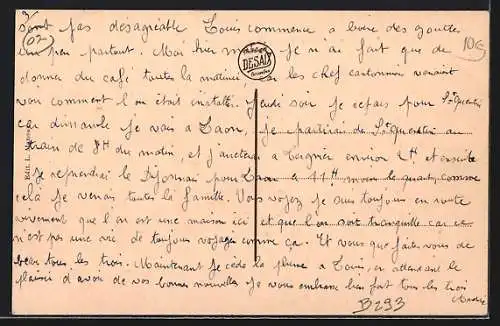 3/
sont pas désagréable Louis commence a boire des gouttes
(02) un peu partout. Moi hier je n'ai fait que de 10€
donner du café toutes la matinée les chef cantonnier venait
DESAIX
voir comment l'on était installé. Jeudi soir je repars pour St Quentin
car dimanche je vais à Laon, je partirais de St Quentin au
train de 8H du matin, et j'attend a Tergnier environ 2H. et ensuite
Je reprendrai le pour Laon a 11H moins le quart, comme
celà je verrais toutes la famille. Vous voyez je suis toujours en route
vivement que l'on est une maison ici et que l'on soit tranquille car ce
n'est pas une vie de toujours voyager comme ça. Et vous que faites vous de
beau tous les trois. Maintenant je cède la plume a Louis, en attendant le
plaisir d'avoir de vos bonnes nouvelles je vous embrasse bien fort tous les trois
B293
Edit. L.